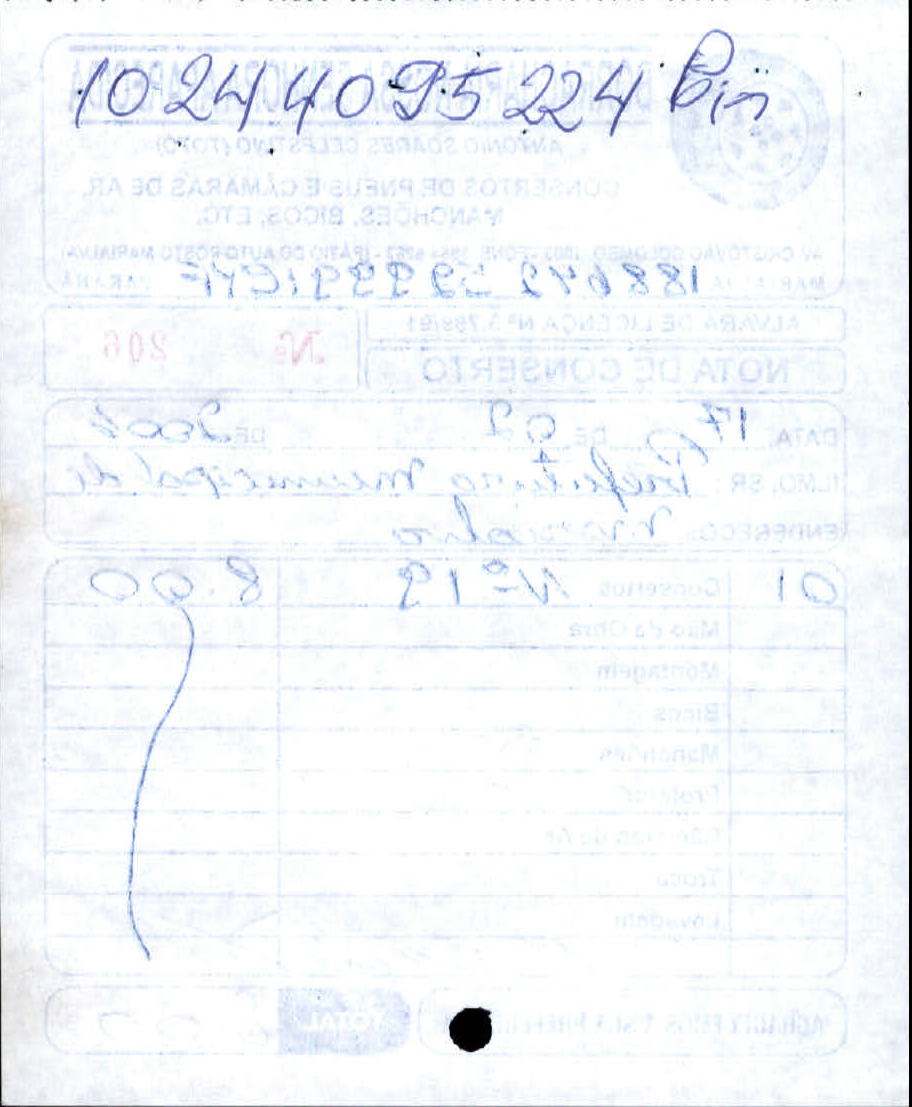 10244095224 Pis
ANTONIO SOARES CELESTINO (TOTO)
CONSERTOS DE PNEUS E CÂMARAS DE AR,
MANCHÕES, BICOS, ETC.
AV. CRISTÓVÃO COLOMBO, - FONE - (PÁTIO DO AUTO POSTO MARIALVA)
MARIALVA PARANÁ
ALVARÁ DE LICENÇA Nº 3.799/91
NOTA DE CONSERTO
Nº 206
DATA, 17 DE 02 DE
ILMO. SR. Prefeitura Municipal de
ENDEREÇO: Marialva
01 Consertos Nº 19 8.00
Mão de Obra
Montagem
Bicos
Manchões
Câmaras de Ar
Troca
Lavagem
AGRADECEMOS A SUA PREFERÊNCIA TOTAL